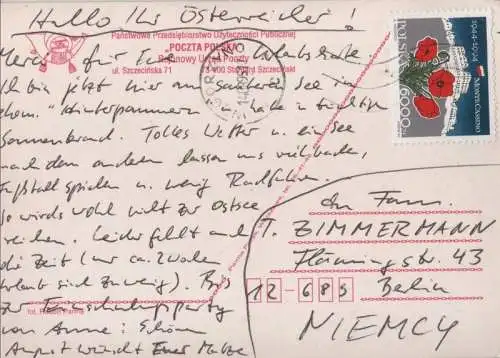 Hallo Ihr Österreicher!
Państwowe Przedsiębiorstwo Użyteczności Publicznej
„POCZTA POLSKA”
Rejonowy Urząd Poczty
ul. Szczecińska 71
Stargard Szczeciński
für
Ich bin jetzt hier am
"Hinterpommern" habe
Sonnenbrand. Tolles Wetter u. ein See
nach dem anderen lassen uns viel baden,
Fußball spielen u. wenig Radfahren.
So wirds wohl nicht zur Ostsee
reichen. Leider fehlt auch
die Zeit (nur ca. 2 Wochen
Urlaub sind zu wenig). Bis
zur Einschulungsparty
von Anne! Schönen
August wünscht Euer
fot.
1944-1994
POLSKA
6000 ZŁ
MONTE CASSINO
An Fam.
T. ZIMMERMANN
Flämingstr. 43
12-689 Berlin
NIEMCY